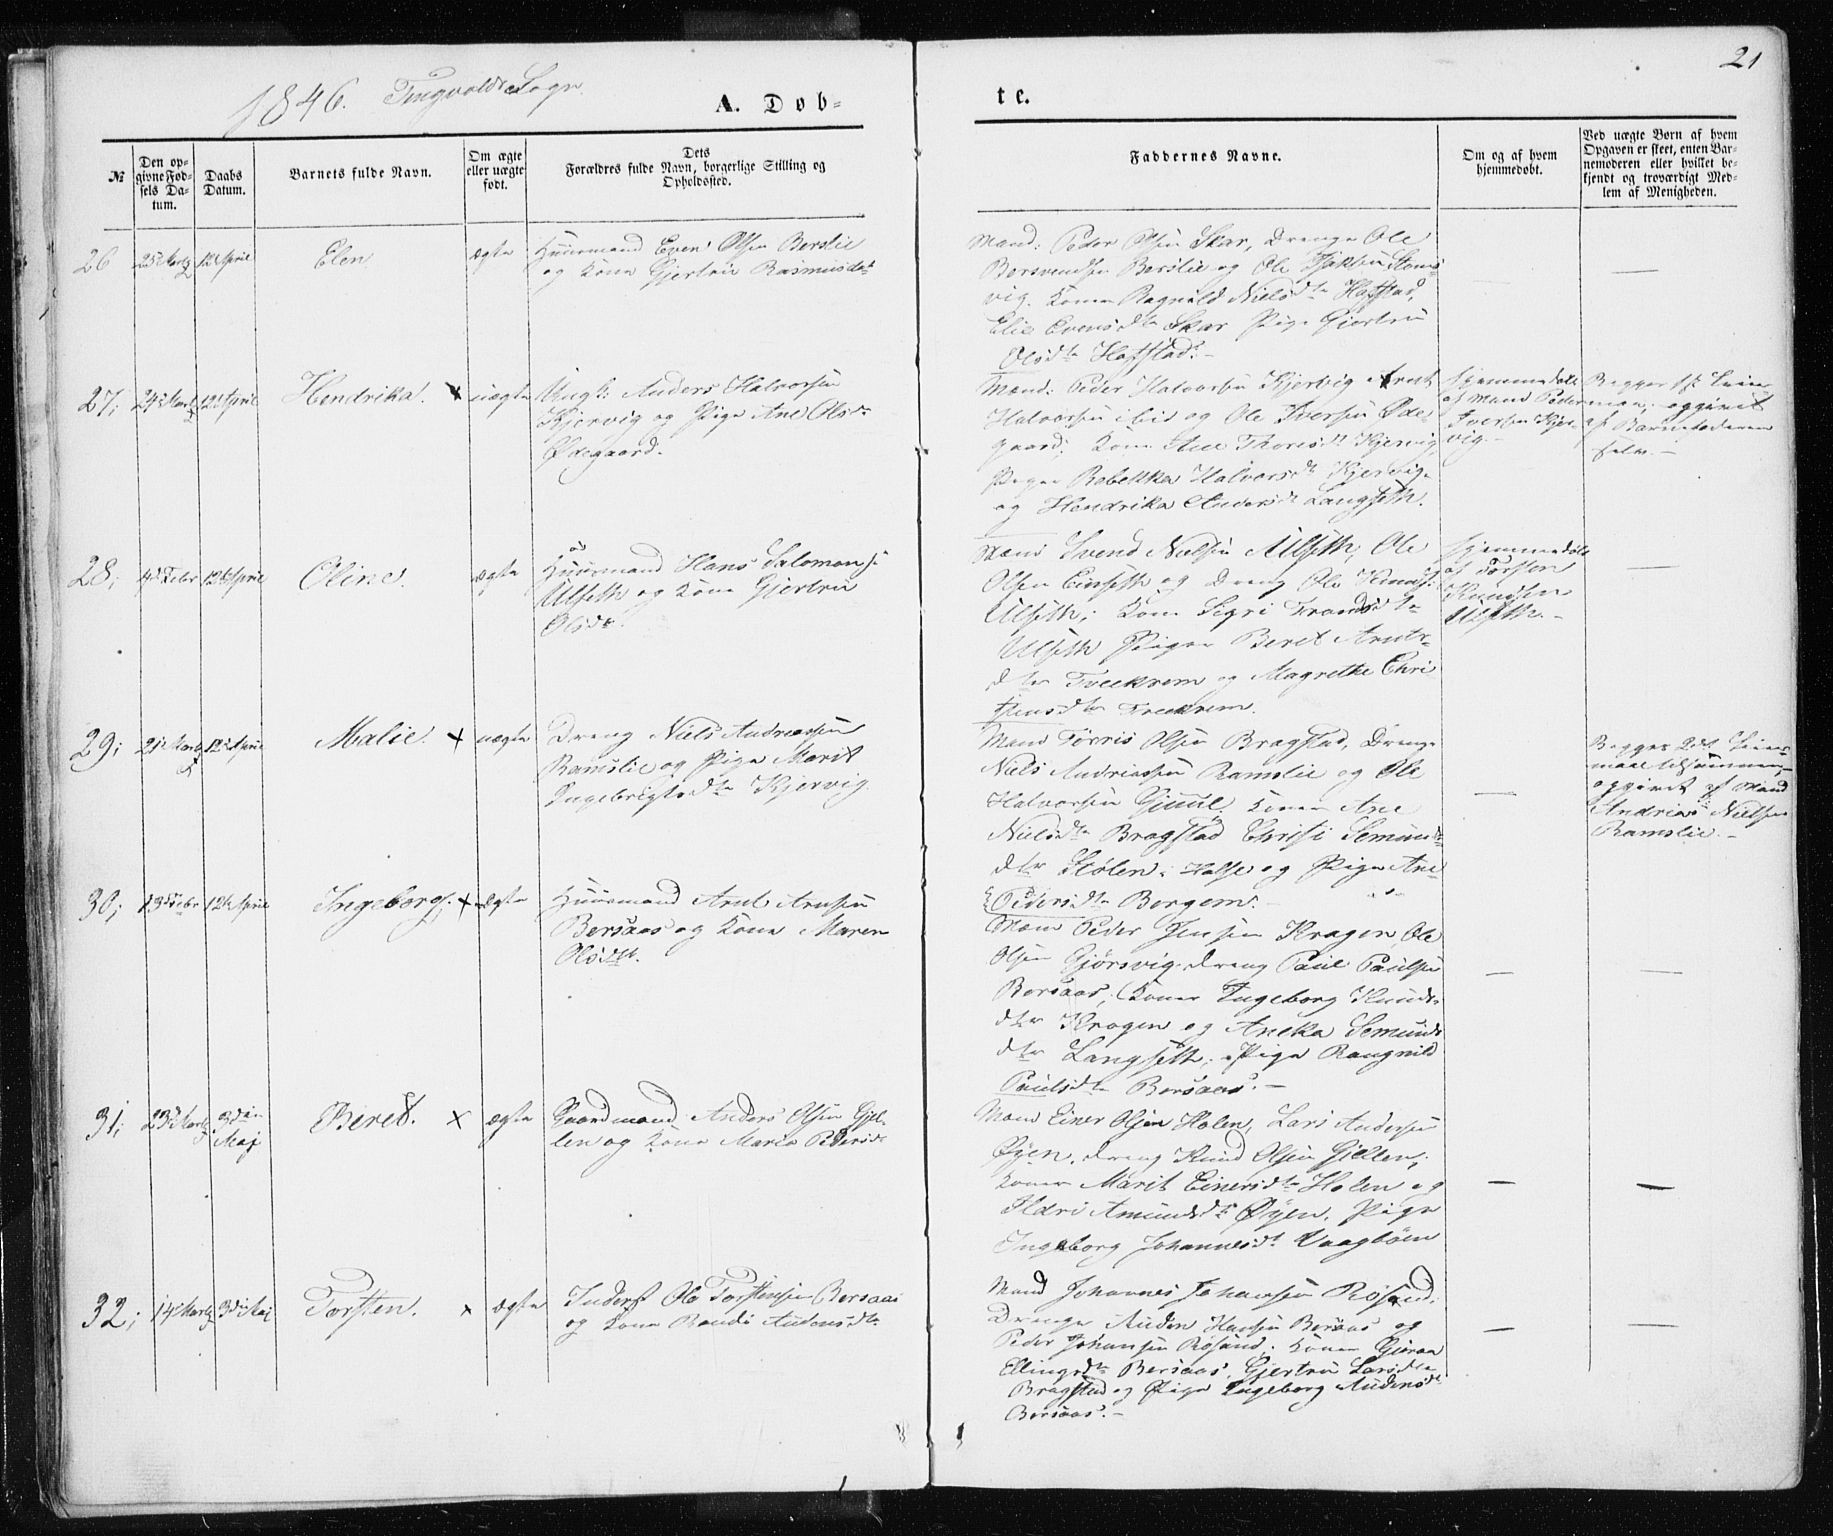 21
1846. Tingvolds Sogn.
A. Døb-
te.
№
Den op-
givne Fød-
sels Da-
tum.
Daabs
Datum.
Barnets fulde Navn.
Om ægte
eller uægte
født.
Dets
Forældres fulde Navn, borgerlige Stilling og
Opholdssted.
Faddernes Navne.
Om og af hvem
hjemmedøbt.
Ved uægte Børn af hvem
Opgaven er skeet, enten Bar-
nemoderen eller hvilket be-
kjendt og troværdigt Med-
lem af Menigheden.
26
25de Marts
12te April
Elen
ægte
Huusmand Even Olsen Berslie
og Kone Gjertru Rasmusdtr
Mænd: Peder Olsen Skar, Drenge Ole
Berslie og Ole
vig. Koner Ragnild Nielsdtr Hafstad,
Elie Evensdtr Skar Pige Gjertru
Olsdtr Hafstad. -
—
—
27;
24de Marts
12te April
Hendrika. x
uægte
Ungk: Anders Halvorsen
Kjervig og Pige Ane Olsdtr
Ødegaard.
Mænd: Peder Halvorsen Kjervig Arnt
Halvorsen ibid og Ole Iversen Øde-
gaard; Kone Ane Thoresdtr Kjervig,
Piger Rebekka Halvorsdtr Kjervig
og Hendrika Andersdtr Langseth.
Hjemmedøbt
af Mand Peder
Iversen Kjer-
vig. -
Begges 1ste Leier-
maal, opgivet
af Barnemoderen
selv. -
28;
4de Febr
12te April
Oline.
ægte
Huusmand Hans Salomons:
Ulseth og Kone Gjertru
Olsdtr.
Mænd Svend Nielsen Ulseth, Ole
Olsen Einseth og Dreng Ole Knuds:
Ulseth; Kone Sigri Trondsdtr
Ulseth Piger Beret Arnts-
dtr Tveekrem og Magrethe Chri-
stensdtr Tveekrem.
Hjemmedøbt
af Torsten
Knudsen
Ulseth. -
—
29;
21de Marts
12te April
Malie. x
uægte
Dreng Niels Andreassen
Ramslie og Pige Marit
Ingebrigtsdtr Kjervig.
Mænd Tørris Olsen Bragstad, Drenge
Niels Andreassen Ramslie og Ole
Halvorsen Gjuul. Koner Ane
Nielsdtr Bragstad Christi Semunds-
dtr Stølen i Halse og Pige Ane
Pedersdtr Bergem. -
—
Begges 2det Leier-
maal tilsammen,
opgivet af Mand
Andreas Nielsen
Ramslie. -
30;
13de Febr
12te April
Ingeborg; x
ægte
Huusmand Arnt Arnsen
Bersaas og Kone Maren
Olsdtr.
Mænd Peder Jensen Kragen, Ole
Olsen Gjørsvig. Dreng Paul Paulsen
Bersaas, Koner Ingeborg Knuds-
dtr Kragen og Aneka Semunds-
dtr Langseth. Pige Rangnild
Paulsdtr Bersaas. -
—
—
31;
23de Marts
3die
Maj
Beret. x
ægte
Gaardmand Anders Olsen Gjel-
len og Kone Marie Pedersdtr
Mænd Einer Olsen Holen, Lars Andersen
Øyen. Dreng Knud Olsen Gjellen;
Koner Marit Einersdtr Holen og
Ildri Amundsdtr Øyen. Pige
Ingeborg Johannesdtr Vaagbøen
—
—
32;
14de Marts
3die Maj
Torsten. x
ægte
Inderst Ole Torstensen Bersaas
og Kone Randi Audensdtr
Mænd Johannes Johansen Røsand.
Drenge Auden Hansen Bersaas og
Peder Johansen Røsand. Koner Gjøran
Ellingsdtr Bersaas, Gjertru Larsdtr
Bragstad og Pige Ingeborg Audensdtr
Bersaas. -
—
—